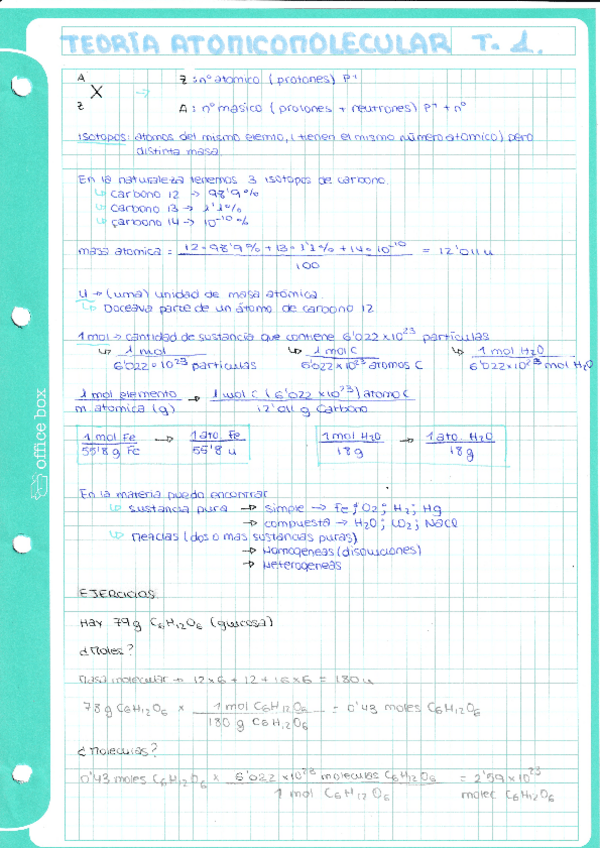 TEORÍA ATOMICOMOLECULAR T. 1.
A
X → Z: nº atomico (protones) P⁺
Z A: nº masico (protones + neutrones) P⁺ + nº
isotopos: atomos del mismo elemto, (tienen el mismo número atomico) pero
distinta masa.
En la naturaleza tenemos 3 isotopos de carbono.
↳ carbono 12 → 98'9%
↳ carbono 13 → 1'1%
↳ carbono 14 → 10⁻¹⁰ %
masa atomica = 12·98'9% + 13·1'1% + 14·10⁻¹⁰ = 12'011 u
100
u → (uma) unidad de masa atómica.
↳ Doceava parte de un átomo de carbono 12
1 mol → cantidad de sustancia que contiene 6'022 x 10²³ particulas
↳ 1 mol ↳ 1 mol C ↳ 1 mol H₂O
6'022 x 10²³ particulas 6'022 x 10²³ atomos C 6'022 x 10²³ mol H₂O
1 mol elemento → 1 mol C (6'022 x 10²³) atomo C
m atomica (g) 12'011 g Carbono
1 mol Fe → 1 ato. Fe 1 mol H₂O → 1 ato. H₂O
55'8 g Fe 55'8 u 18 g 18 g
En la materia puedo encontrar
↳ sustancia pura → simple → Fe; O₂; H₂; Hg
→ compuesta → H₂O; CO₂; NaCl
↳ Mezclas (dos o mas sustancias puras)
→ Homogeneas (disoluciones)
→ Heterogeneas
EJERCICIOS
Hay 79g C₆H₁₂O₆ (glucosa)
¿Moles?
Masa molecular → 12x6 + 12 + 16x6 = 180 u
78 g C₆H₁₂O₆ x 1 mol C₆H₁₂O₆ = 0'43 moles C₆H₁₂O₆
180 g C₆H₁₂O₆
¿Moleculas?
0'43 moles C₆H₁₂O₆ x 6'022 x10²³ moleculas C₆H₁₂O₆ = 2'59 x 10²³
1 mol C₆H₁₂O₆ molec C₆H₁₂O₆
office box